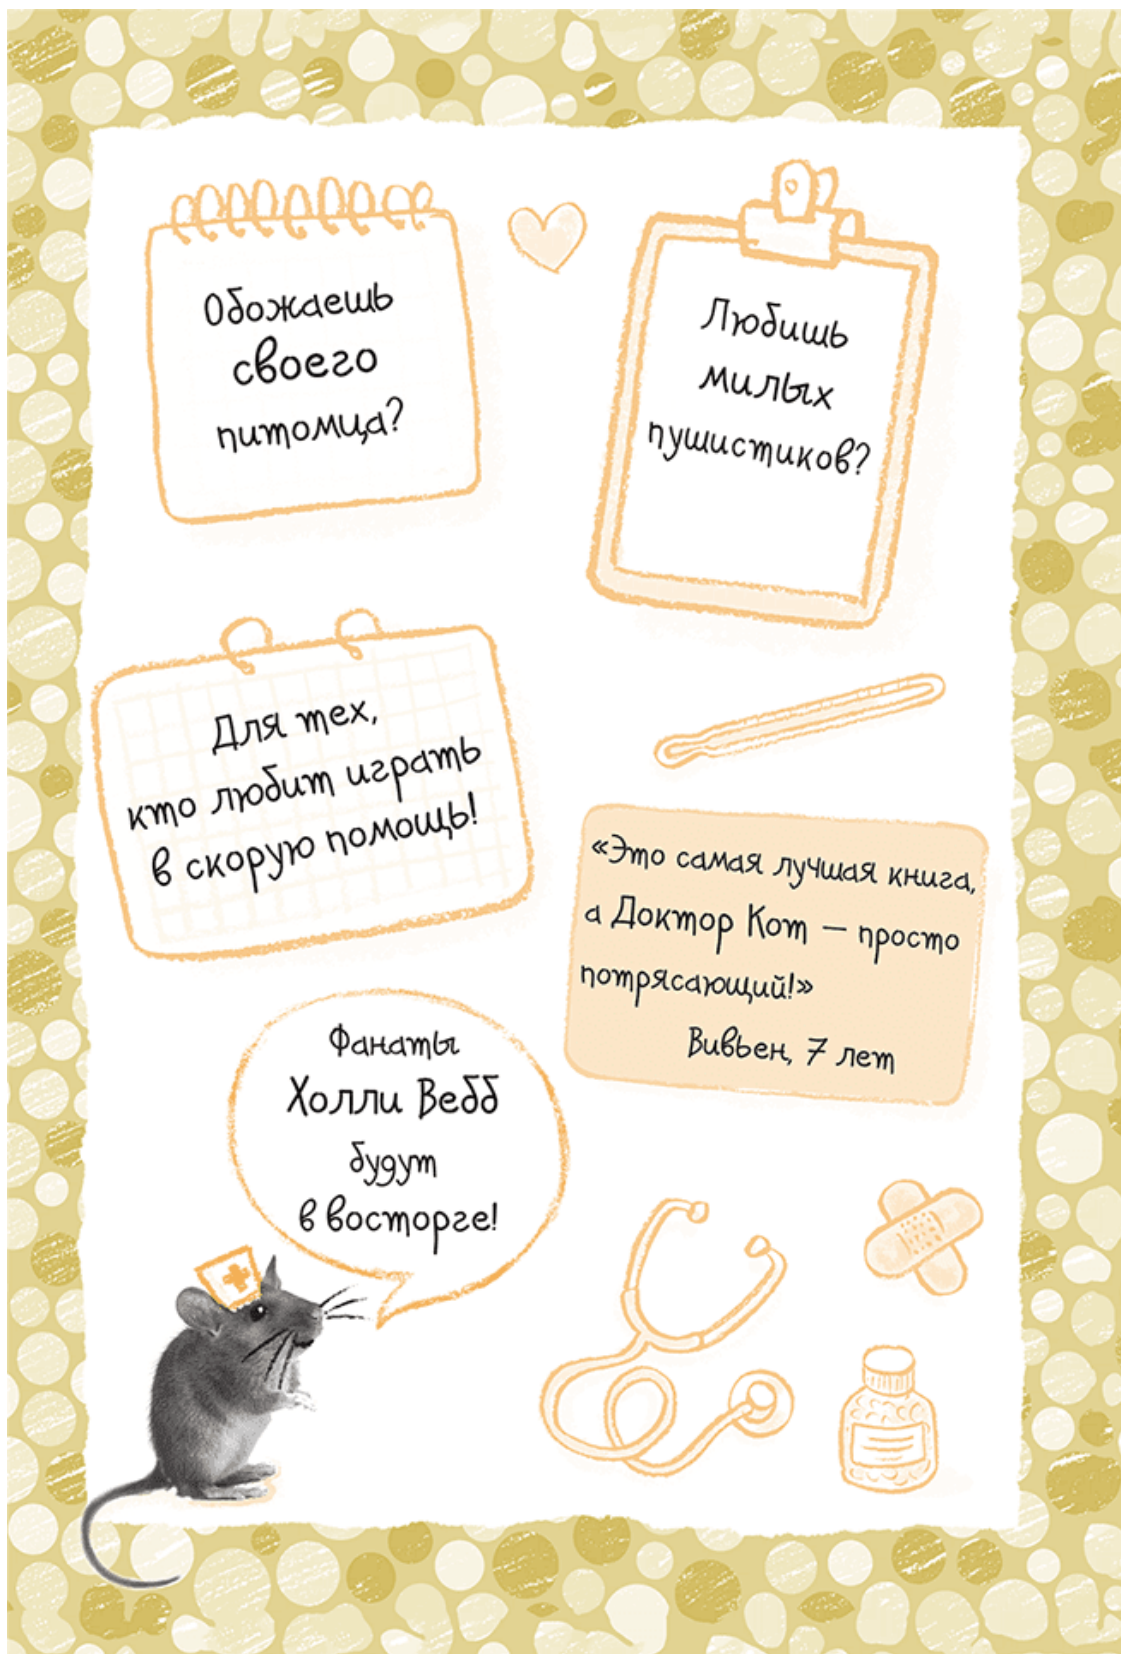 Обожаешь
своего
питомца?
Любишь
милых
пушистиков?
Для тех,
кто любит играть
в скорую помощь!
«Это самая лучшая книга,
а Доктор Кот — просто
потрясающий!»
Вивьен, 7 лет
Фанаты
Холли Вебб
будут
в восторге!